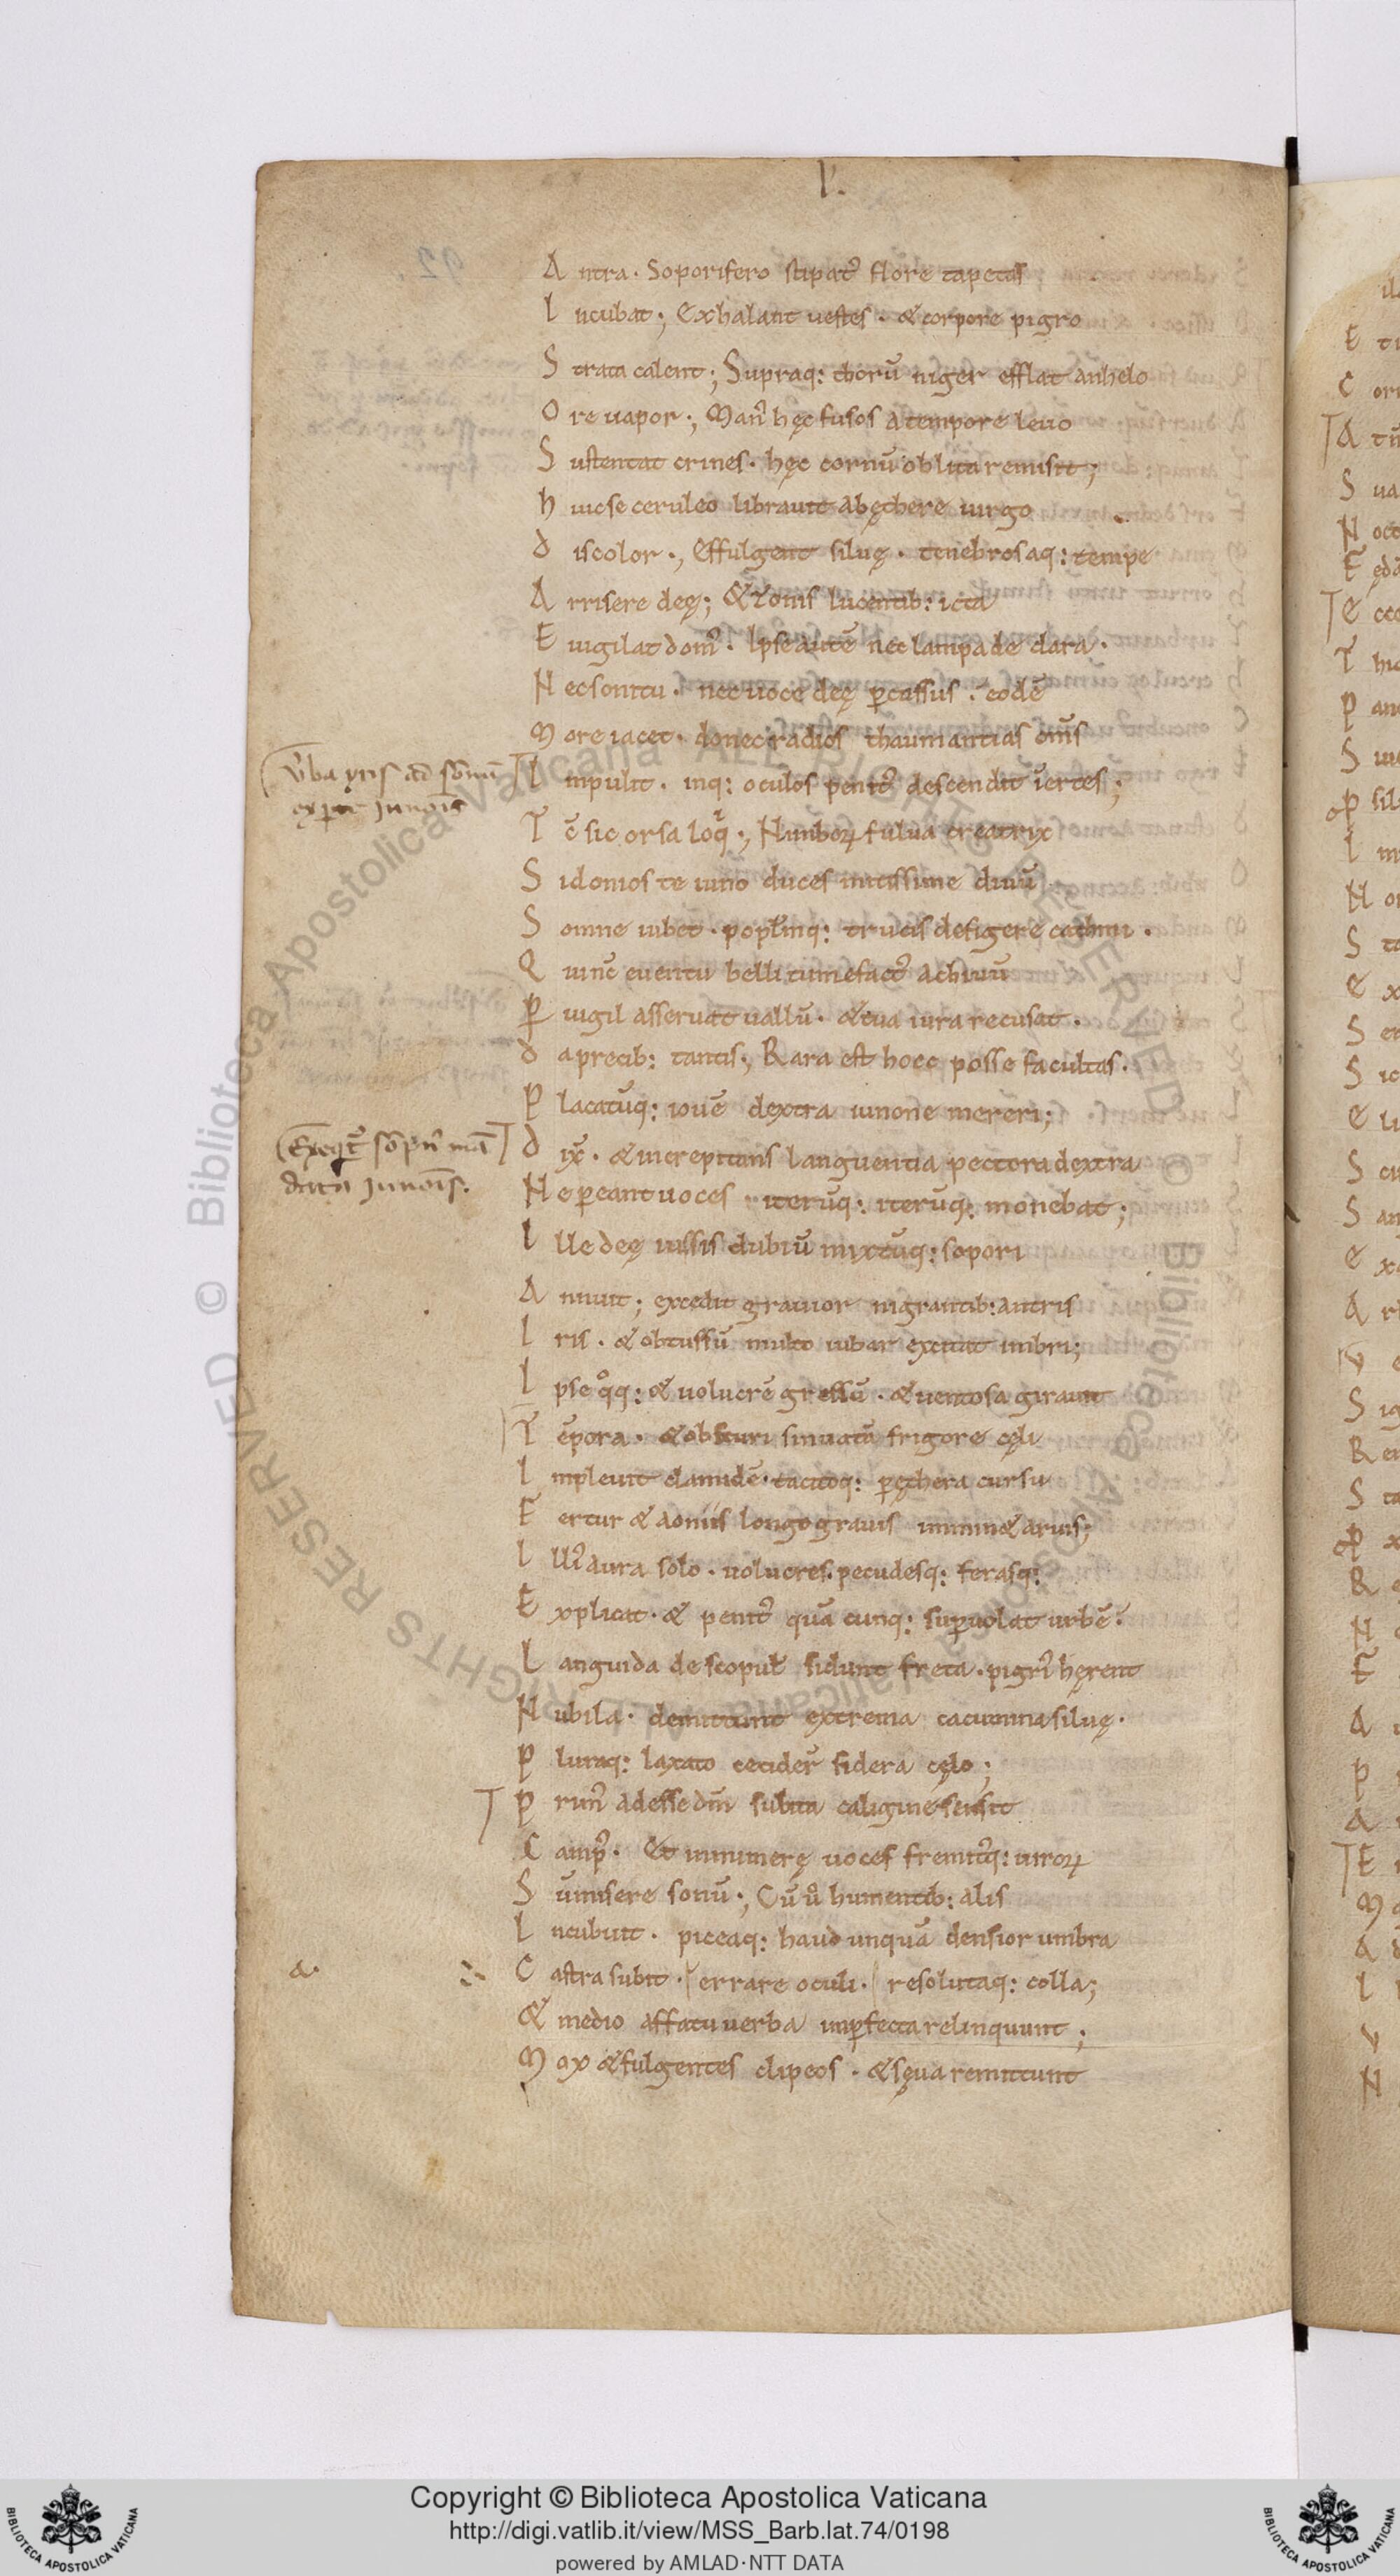 V.
Antra. Soporifero stipatꝰ flore tapetas
Incubat; Exhalant uestes. & corpore pigro
Strata calent; Supraq: thorū niger efflat anhelo
Ore uapor., Manꝰ hęc fusos a tempore leuo
Sustentat crines. hęc cornu oblita remisit;
huic se ceruleo librauit abęthere uirgo
discolor., Effulgent siluę. tenebrosaq: tempe
Arrisere deę; & zonis lucentib: icta
Euigilat domꝰ. Ipse autē nec lampade clara.
Nec sonitu. nec uoce deę ꝑcussus. eodē
More iacet. donec radios thaumantias om̄s
Inpulit. inq: oculos penitꝰ descendit inertes;
Tc̄ sic orsa loqͥ., Nimboꝝ fulua creatrix
Sidonios te iuno duces mitissime diuū
Somne iubet. poplīnq: trucis defigere cathmi.
Qui nc̄ euentu belli tumefactꝰ achiuū
Peruigil asseruat uallū. & tua iura recusat.
da precib: tantis., Rara est hoec posse facultas.
Placatūq: iouē dextra iunone mereri;
dix̄. & increpitans languentia pectora dextra
Ne ꝑeant uoces. iterūq: iterūq: monebat;
Ille deę iussis dubiū mixtūq: sopori
Annuit; excedit grauior nigrantib: antris
Iris. & obtussū multo iubar excitat imbri;
Ipse qͦq: & uolucrē gressū. & uentosa citauit
Tēpora. & obscuri sinuatā frigore cęli
Impleuit clamidē. tacitoq: ꝑ ęthera cursu
Fertur & aoniis longo grauis imminet aruis;
Illiꝰ aura solo. uolucres. pecudesq: ferasq:
Explicat. & penitꝰ quā cunq: suꝑuolat urbē.
Languida de scopul̄ sidunt freta. pigriꝰ hęrent
Nubila. demittunt extrema cacumina siluę.
Pluraq: laxato cecider̄ sidera cęlo;
Primꝰ adesse dm̄ subita caligine sensit
Campꝰ. Et innumerę uoces fremitꝰq: uiroꝝ
Sūmisere sonū., Cū uͦ humentib: alis
Incubuit. piceaq: haud unquā densior umbra
Castra subit. errare oculi. resolutaq: colla;
& medio affatu uerba imꝑfecta relinquunt;
Mox & fulgentes clipeos. & sęua remittunt
Vb̄a yris ad sōnū
ex parte Junoīs
Exeqͥtꝰ sōpnꝰ mā
data Junoīs.
a.
Copyright © Biblioteca Apostolica Vaticana
http://digi.vatlib.it/view/MSS_Barb.lat.74/0198
powered by AMLAD·NTT DATA